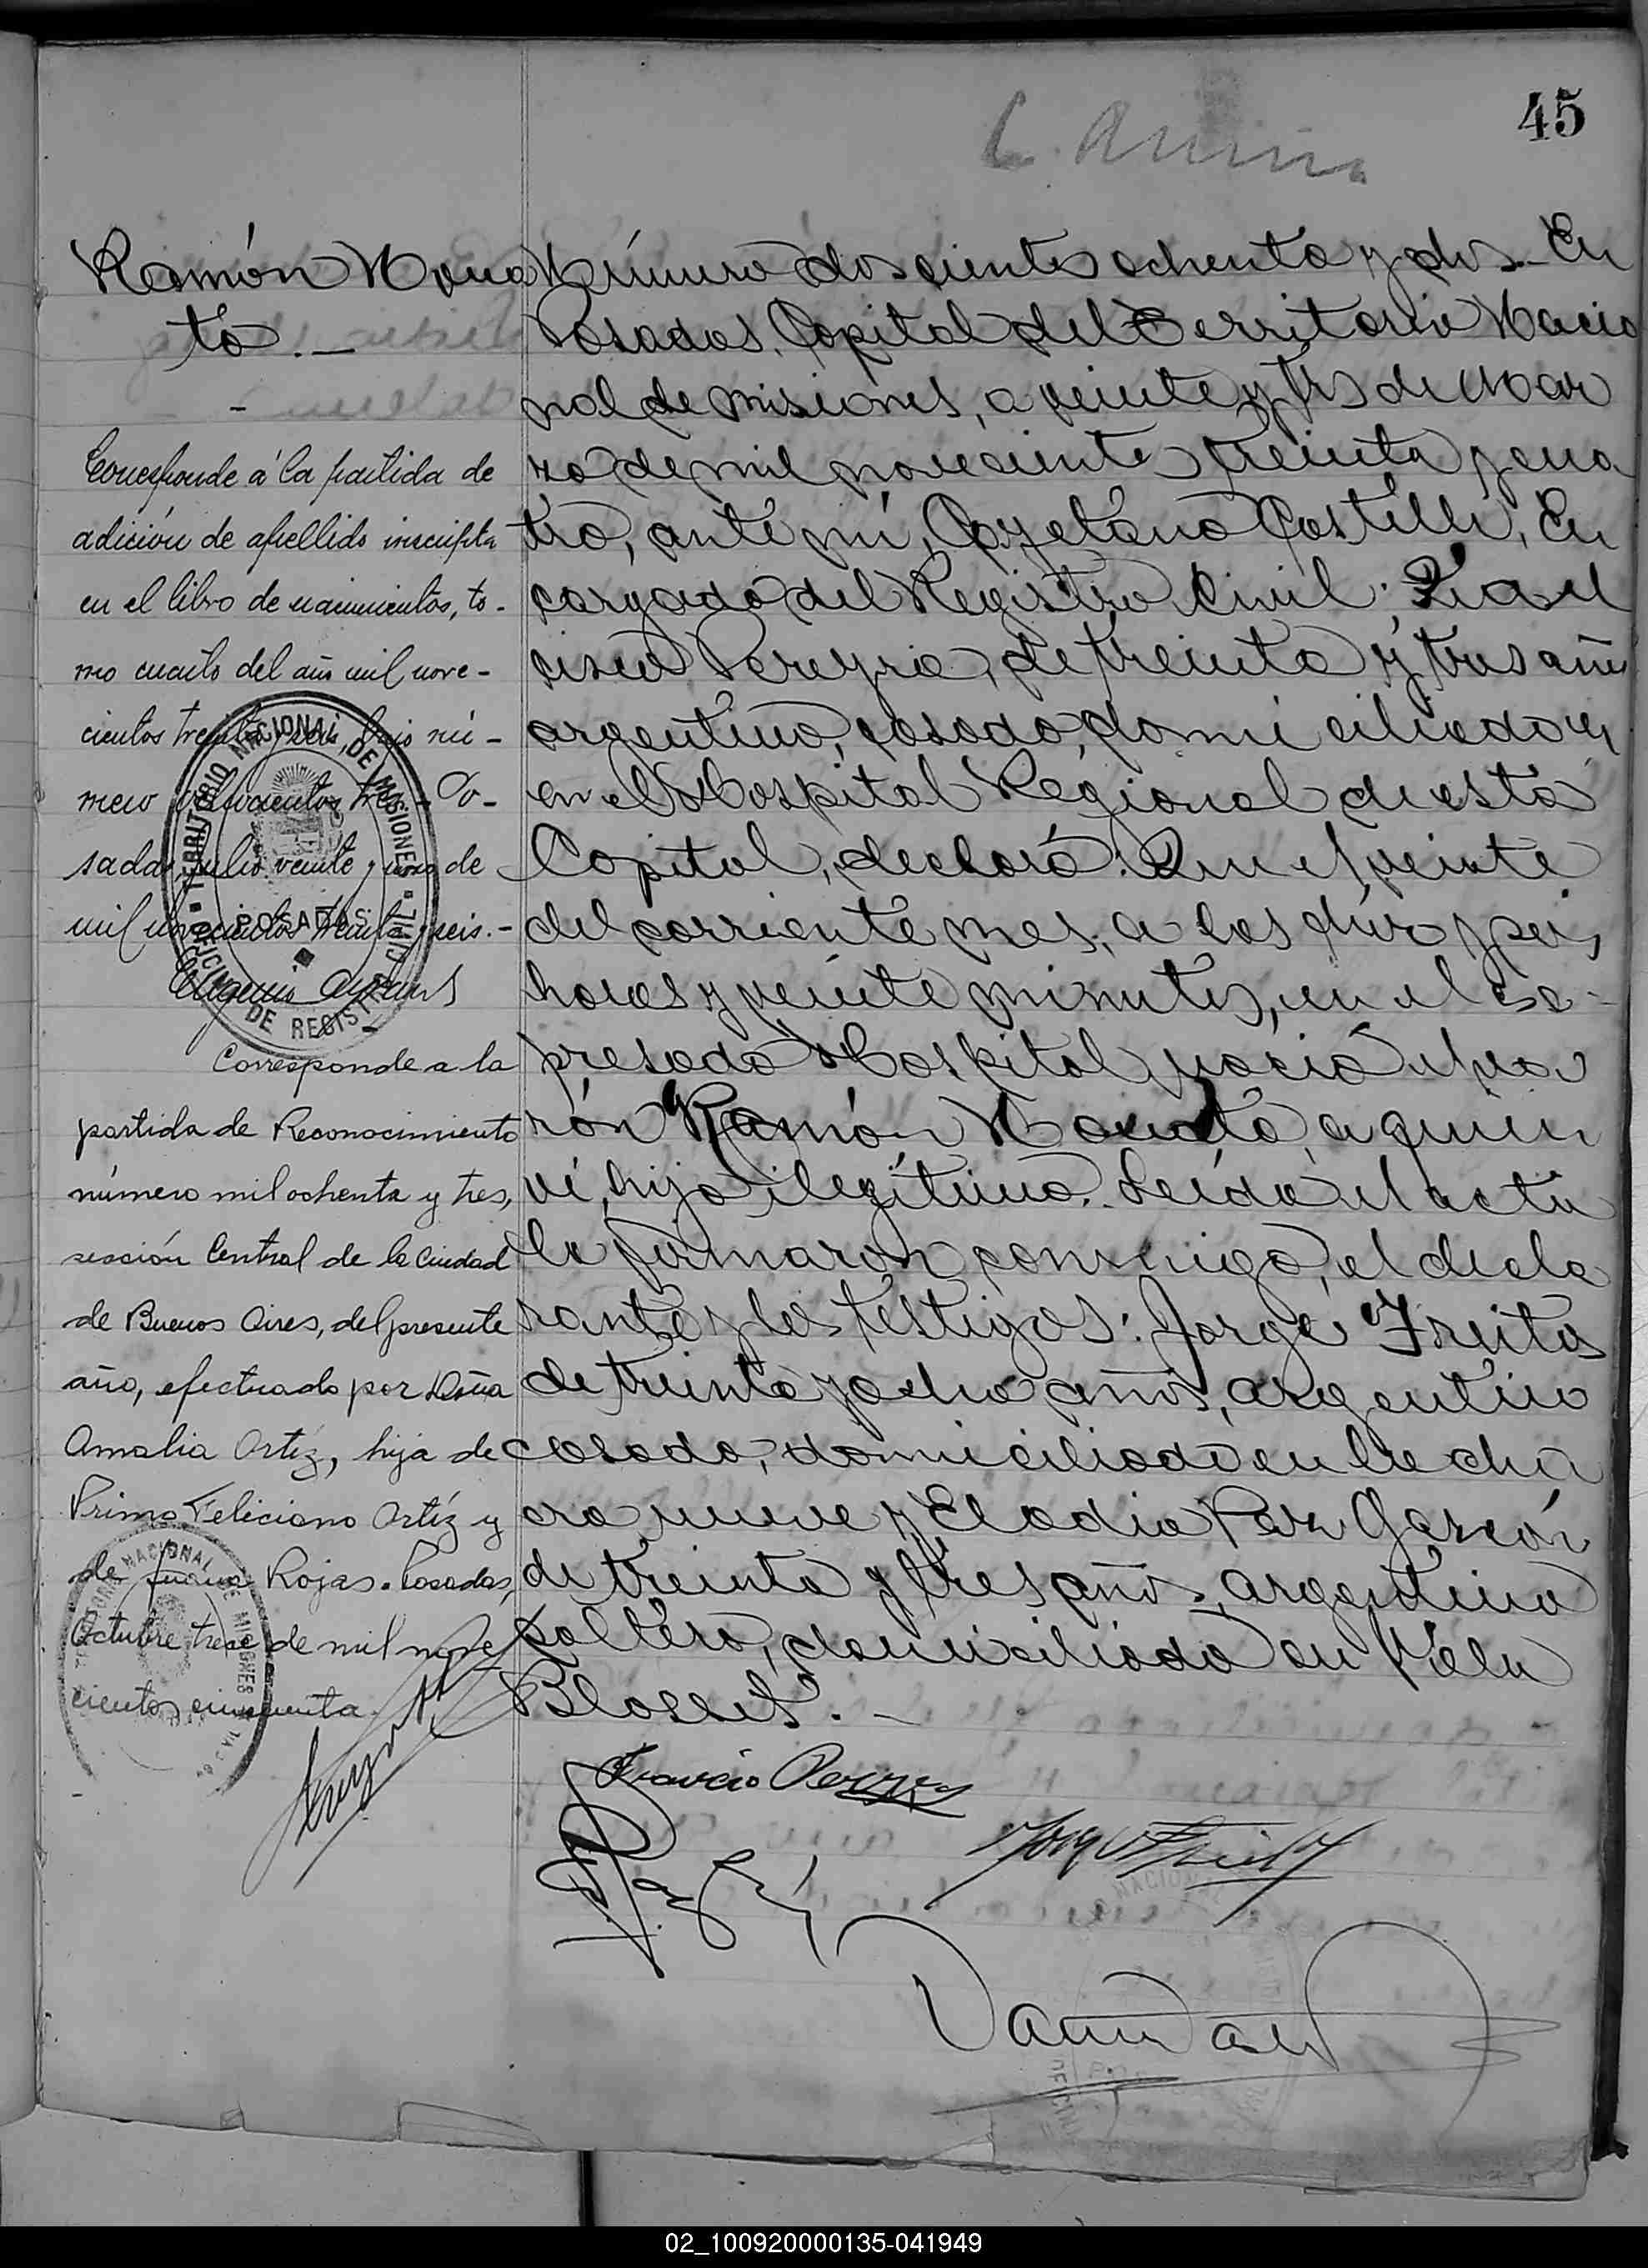 45
Ramón Nona
to.-
Corresponde á la partida de
adición de apellido inscripta
en el libro de nacimientos, to-
mo cuarto del año mil nove-
cientos treinta y seis, bajo nú-
mero tres.- Po-
sadas, julio veinte y uno de
mil novecientos treinta y seis.-
TERRITORIO NACIONAL DE MISIONES
OFICINA DE REGISTRO CIVIL
POSADAS
Corresponde a la
partida de Reconocimiento
número mil ochenta y tres,
sección Central de la Ciudad
de Buenos Aires, del presente
año, efectuado por Doña
Amalia Ortíz, hija de
Primo Feliciano Ortíz y
de Juana Rojas. Posadas,
Octubre trece de mil nove
cientos cincuenta.
Número doscientos ochenta y dos.- En
Posadas, Capital del Territorio Nacio
nal de Misiones, a veinte y tres de Mar
zo de mil novecientos treinta y cua
tro, ante mí, Cayetano Castelli, En
cargado del Registro Civil:
cisco Pereyra, de treinta y tres años
argentino, casado, domiciliado
en el Hospital Regional de esta
Capital, declaró: Que el veinte
del corriente mes, a las diez y seis
horas y veinte minutos, en el ex-
presado Hospital nació el va
rón Ramón Nonato, a quien
ví, hijo ilegítimo. Leída el acta
la firmaron conmigo, el decla
rante y los testigos: Jorge Freitas
de treinta y ocho años, argentino
casado, domiciliado en la cha
cra nueve y Eladio Paz Garzón
de treinta y tres años, argentino
soltero, domiciliado en Villa
Blosset.-
Francisco Pereyra
02_100920000135-041949